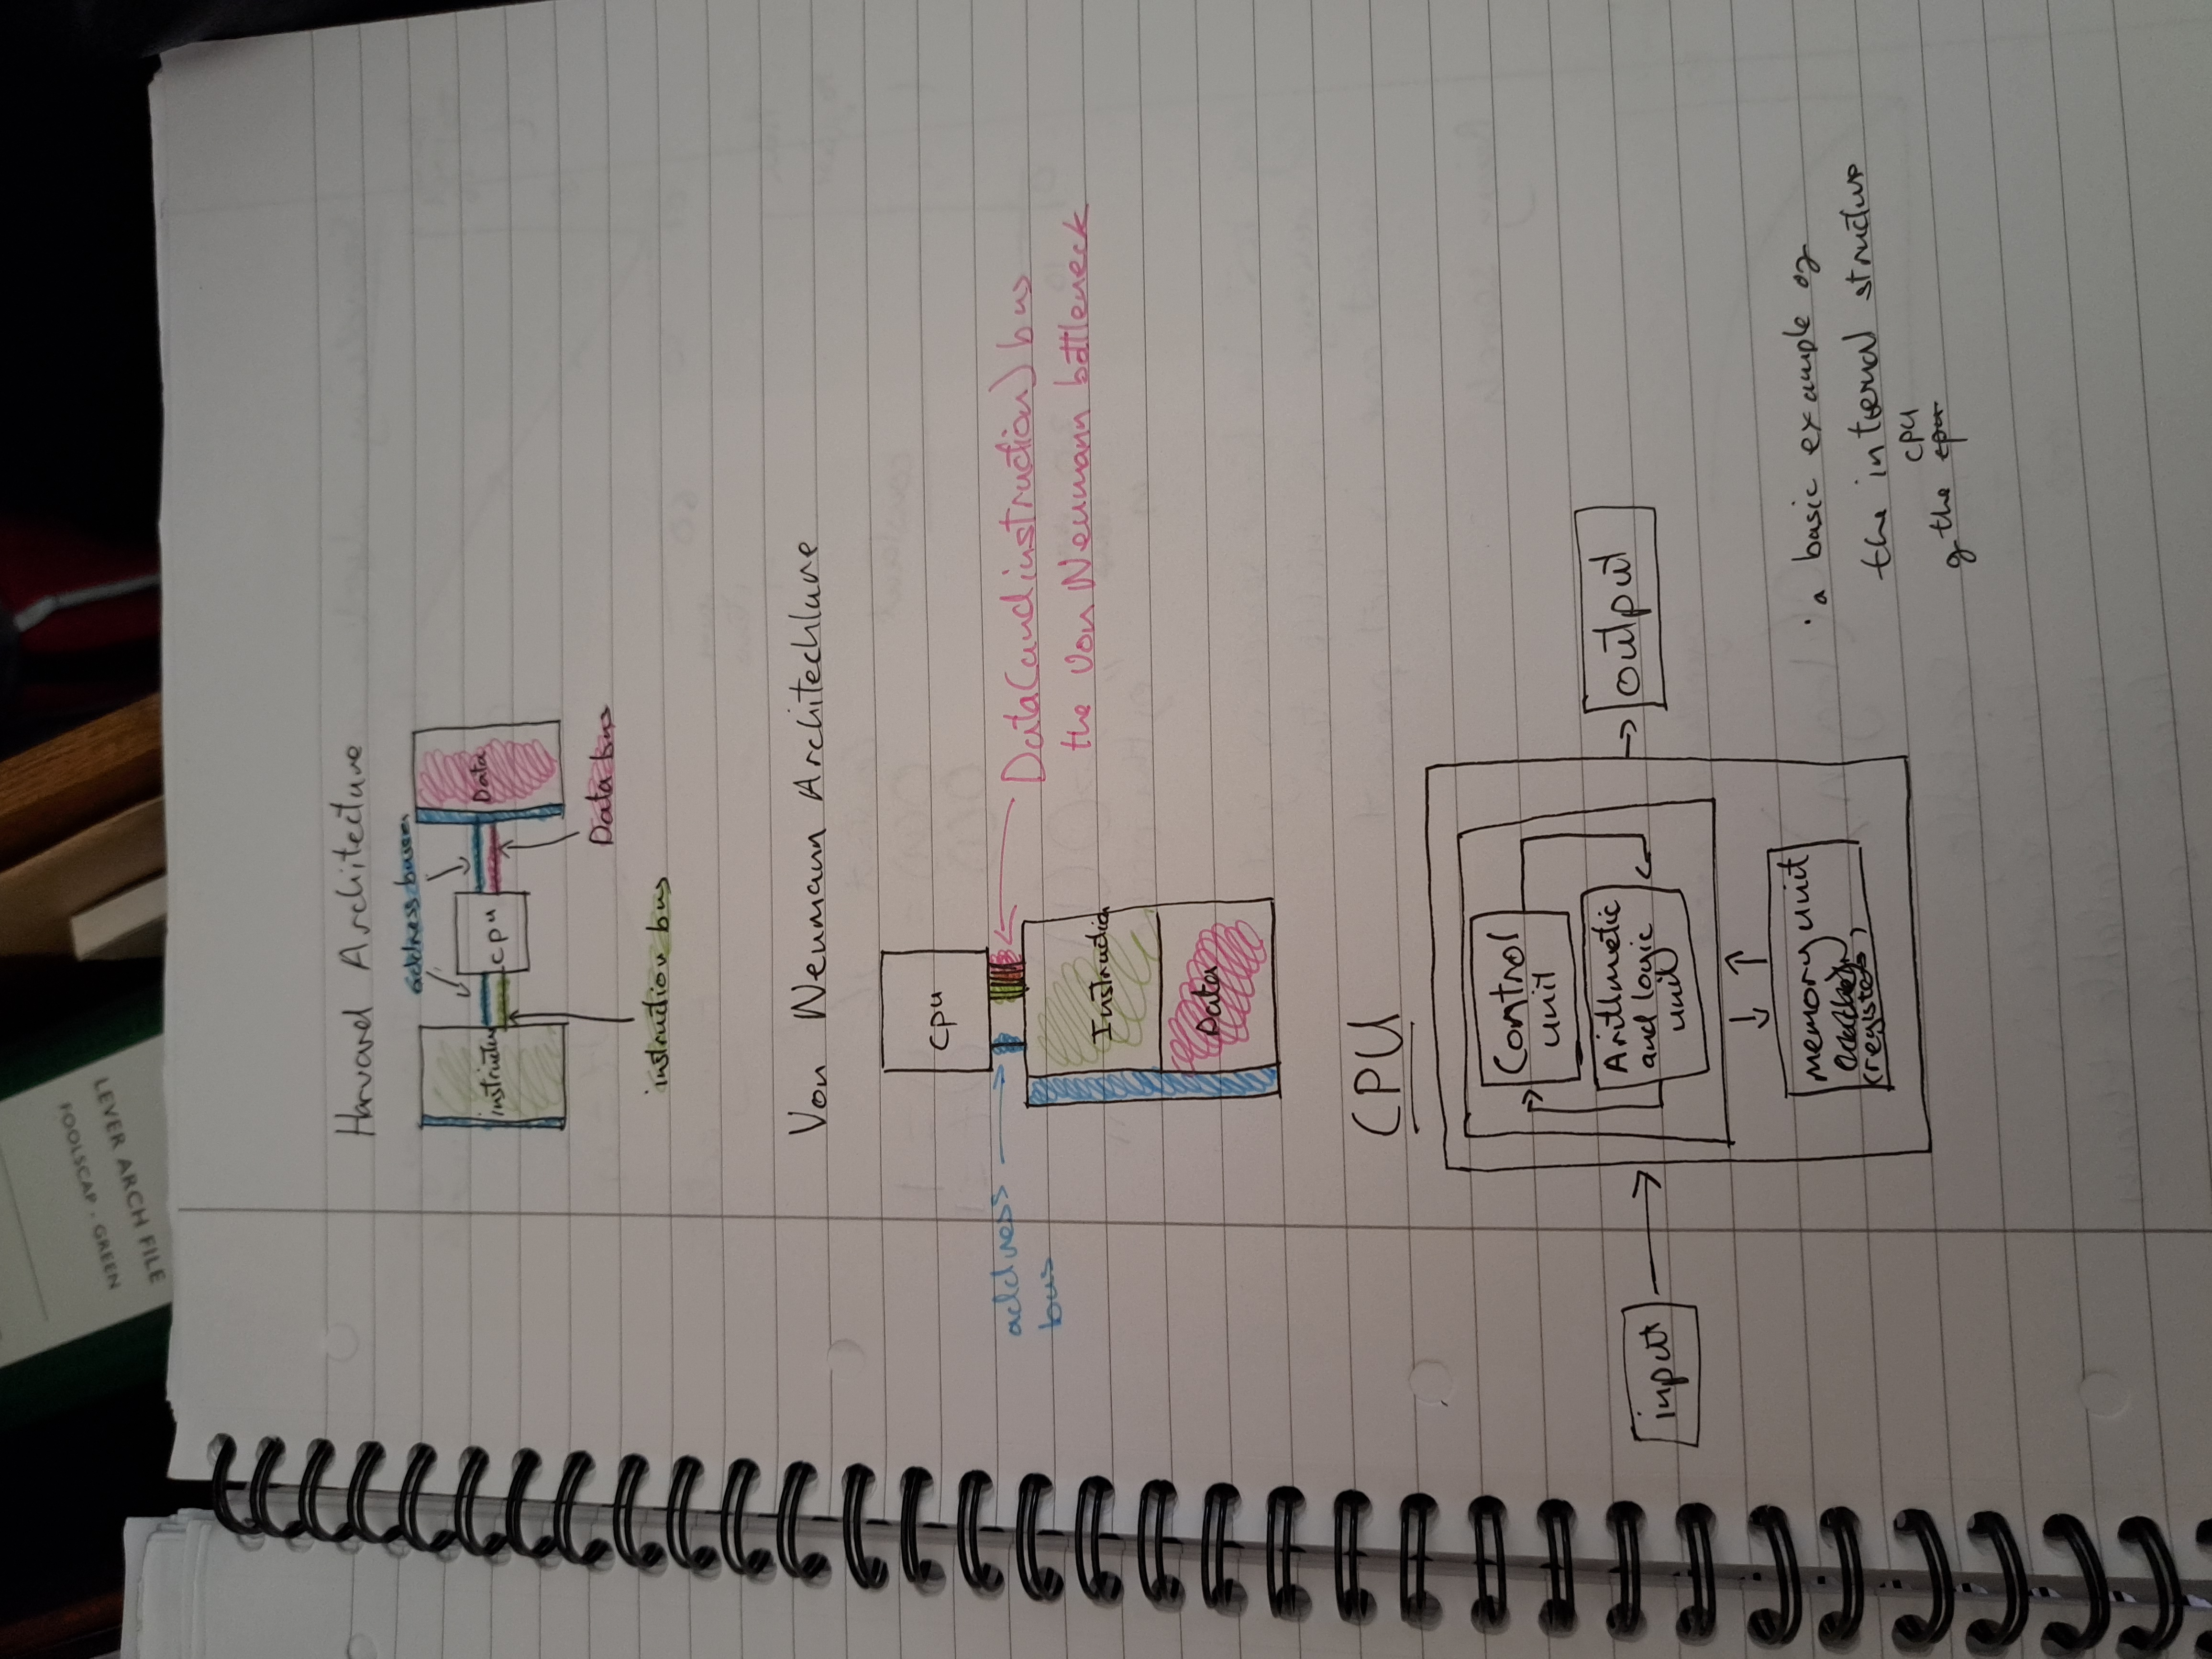 FOOLSCAP · GREEN
LEVER ARCH FILE
Harvard Architecture
address buses
instruction
cpu
Data
Data bus
instruction bus
Von Neumann Architechture
cpu
address
bus
Data(and instruction) bus
the Von Neumann bottleneck
Instruction
Data
CPU
Control
unit
Arithmetic
and logic
unit
input
output
memory unit
(registers)
· a basic example of
the internal structure
cpu
of the cpu